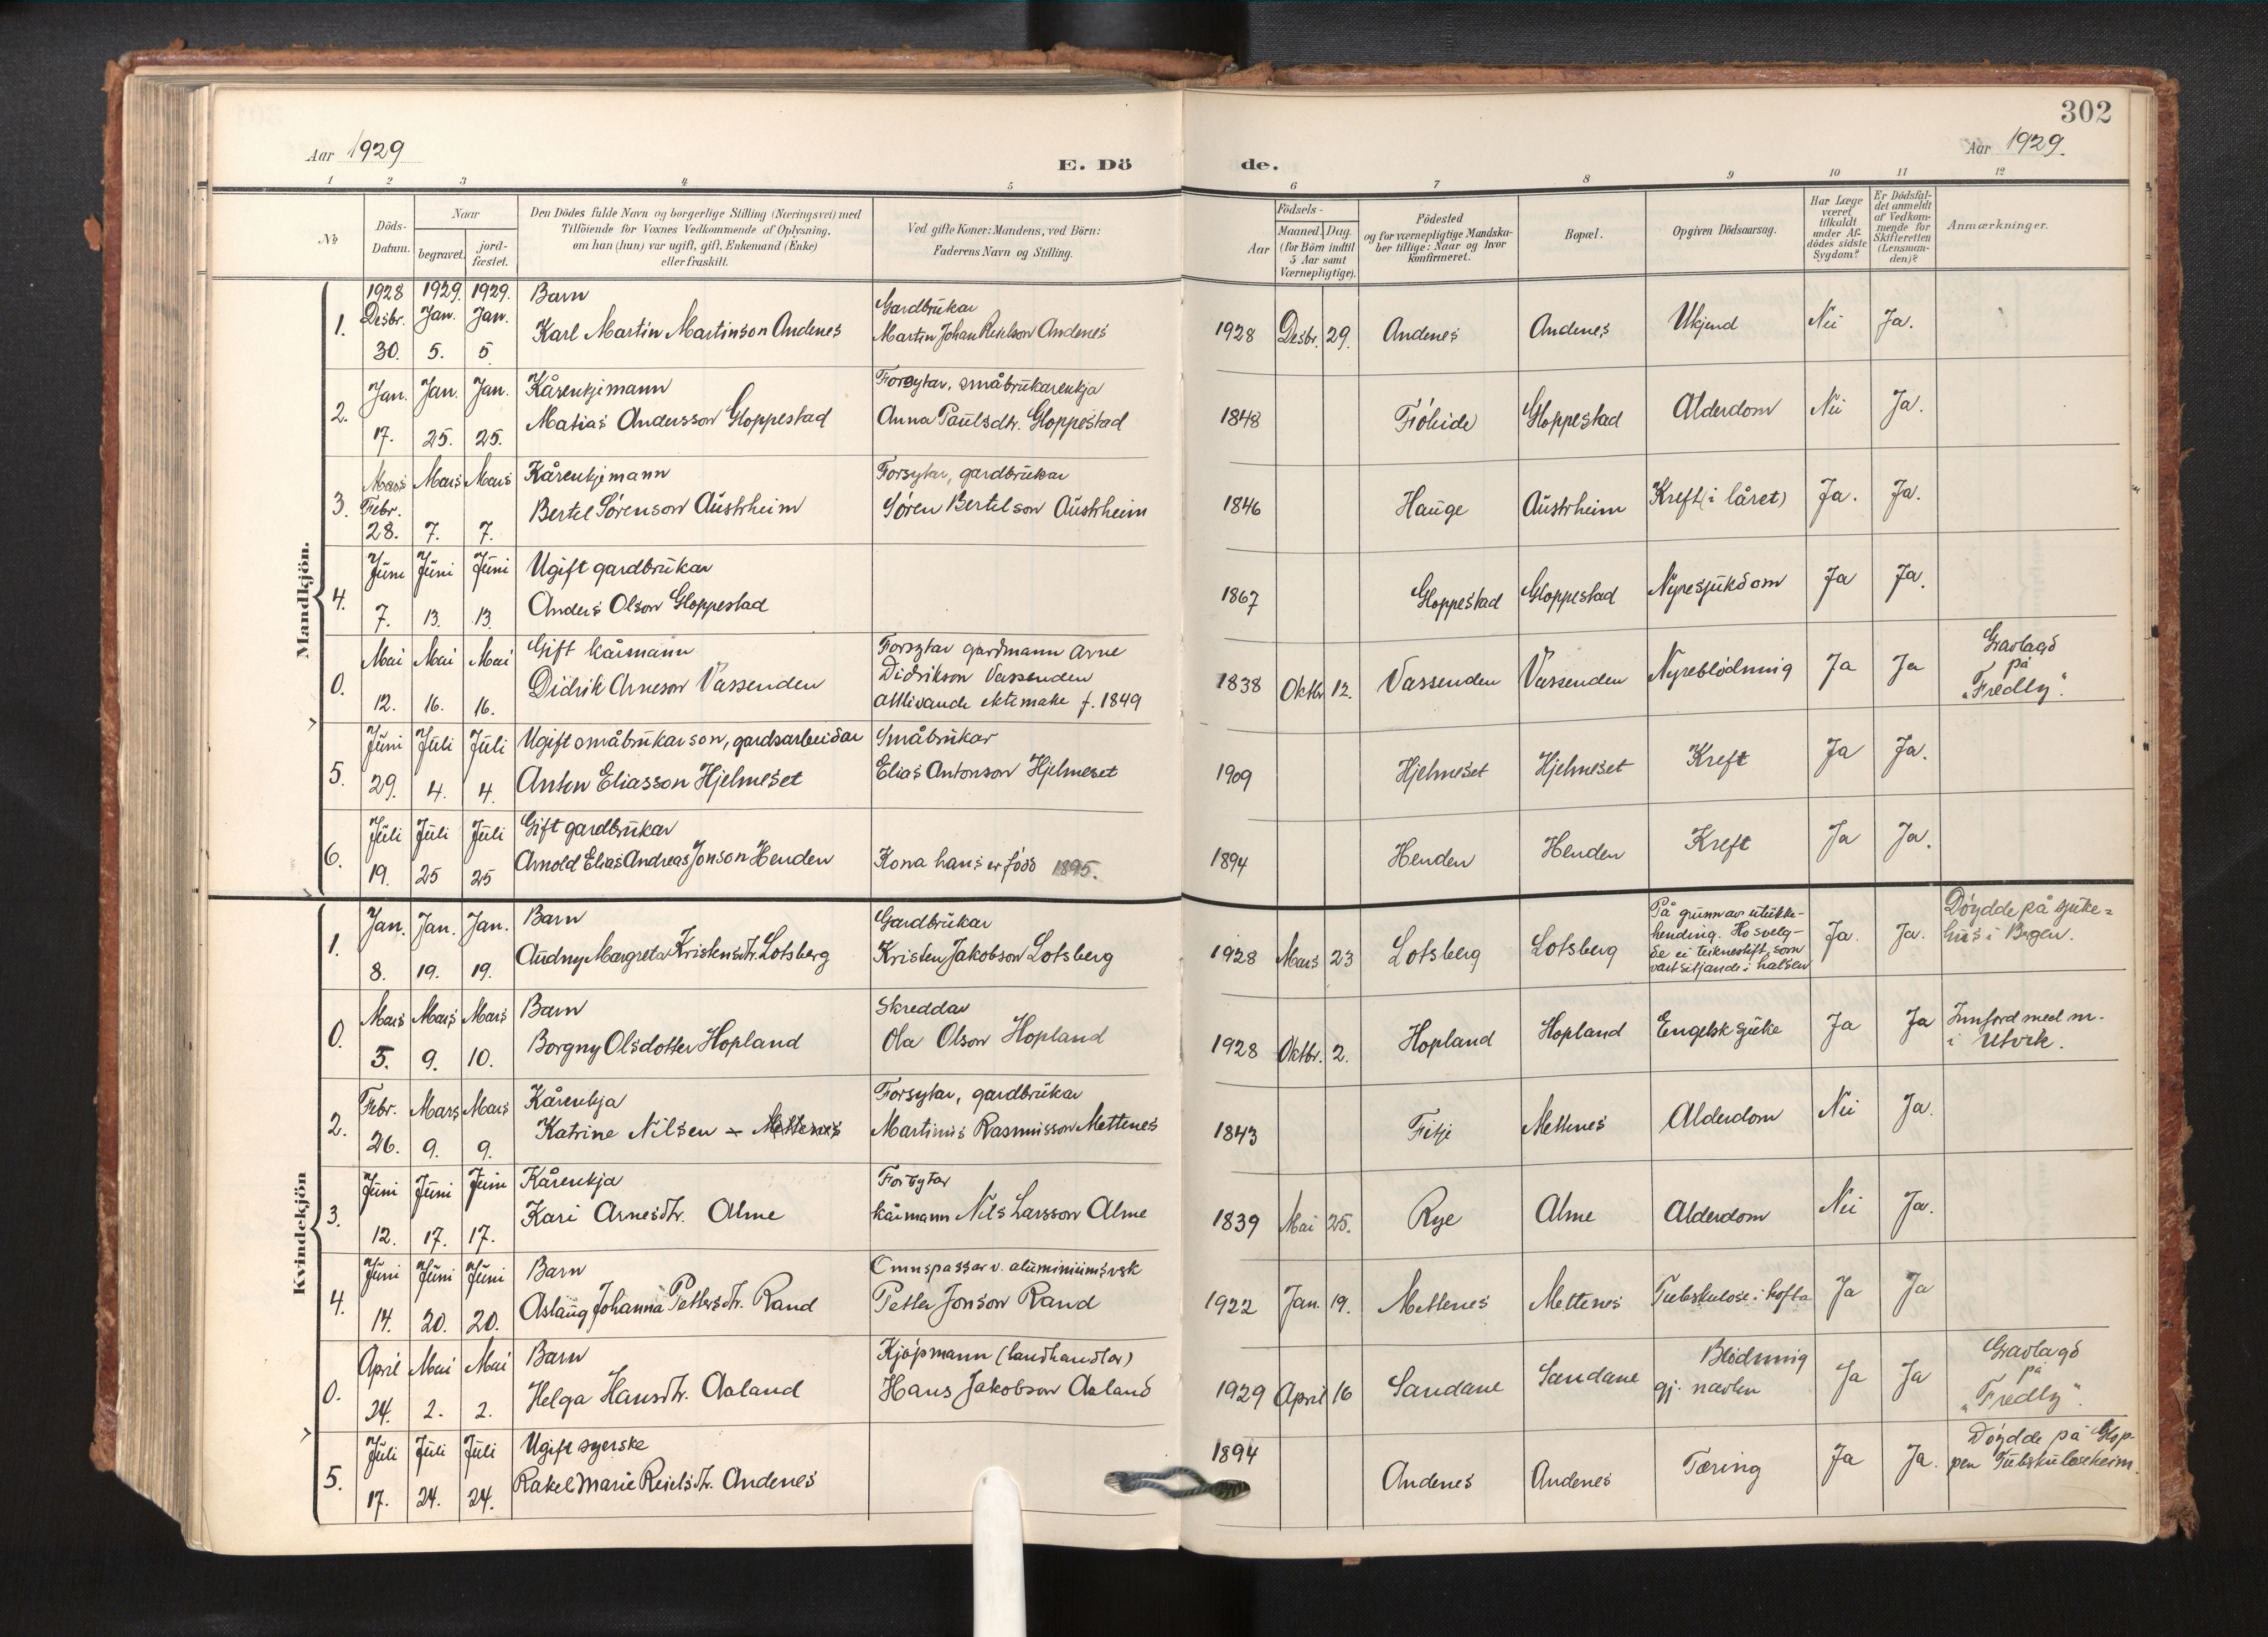 302
Aar 1929
Aar 1929.
E. Dö de.
1 2 3 4 5 6 7 8 9 10 11 12
№
Döds-Datum.
Naar
begravet.
jord-fæstet.
Den Dödes fulde Navn og borgerlige Stilling (Næringsvei) med
Tilföiende for Voxnes Vedkommende af Oplysning,
om han (hun) var ugift, gift, Enkemand (Enke)
eller fraskilt.
Ved gifte Koner: Mandens, ved Börn:
Faderens Navn og Stilling.
Födsels-
Aar
Maaned. Dag.
(for Börn indtil
5 Aar samt
Værnepligtige).
Födested
og for værnepligtige Mandska-
ber tillige: Naar og hvor
konfirmeret.
Bopæl.
Opgiven Dödsaarsag.
Har Læge
været
tilkaldt
under Af-
dödes sidste
Sygdom?
Er Dödsfal-
det anmeldt
af Vedkom-
mende for
Skifteretten
(Lensman-
den)?
Anmærkninger.
Mandkjön.
1928 1929. 1929. Barn
Desbr. Jan. Jan. Gardbrukar
1. Karl Martin Martinson Andenes Martin Johan Andenes 1928 Desbr. 29. Andenes Andenes Ukjend Nei Ja.
30. 5. 5.
Jan. Jan. Jan. Kårenkjemann Forsytar, småbrukarenkja
2. Matias Andersson Gloppestad Anna Paulsdtr. Gloppestad 1848 Fröheide Gloppestad Alderdom Nei Ja.
17. 25. 25.
Mars Mars Mars Kårenkjemann Forsytar, gardbrukar
3. Febr. Bertel Sørenson Austrheim Søren Bertelson Austrheim 1846 Hauge Austrheim Kreft (i låret) Ja. Ja.
28. 7. 7.
Juni Juni Juni Ugift gardbrukar
4. Anders Olson Gloppestad 1867 Gloppestad Gloppestad Nyresjukdom Ja Ja.
7. 13. 13.
Mai Mai Mai Gift kårmann Forsytar gardmann Arne
0. Didrik Arneson Vassenden Didrikson Vassenden 1838 Oktbr. 12. Vassenden Vassenden Nyreblødning Ja Ja Gravlagd
på
12. 16. 16. attlivande ektemake f. 1849 „Fredly“.
Juni Juli Juli Ugift småbrukarson, gardsarbeidar Småbrukar
5. Anton Eliasson Hjelmeset Elias Antonson Hjelmeset 1909 Hjelmeset Hjelmeset Kreft Ja Ja.
29. 4. 4.
Juli Juli Juli Gift gardbrukar
6. Arnold Elias Andreas Jonson Henden Kona hans er fødd 1895. 1894 Henden Henden Kreft Ja Ja.
19. 25 25
Kvindekjön
Jan. Jan. Jan. Barn Gardbrukar
1. Audny Margreta Kristensdtr. Lotsberg Kristen Jakobson Lotsberg 1928 Mars 23 Lotsberg Lotsberg
På grunn av ulukke-
hending. Ho svelg-
de ei teiknestift, som
vart sitjande i halsen
Ja. Ja.
Døydde på sjuke=
hus i Bergen.
8. 19. 19.
Mars Mars Mars Barn Skreddar
0. Borgny Olsdotter Hopland Ola Olson Hopland 1928 Oktbr. 2. Hopland Hopland Engelsk sjuke Ja Ja Innførd med nr.
i Utvik.
5. 9. 10.
Febr. Mars Mars Kårenkja Forsytar, gardbrukar
2. Katrine Nilsen - Mettenes Martinus Rasmusson Mettenes 1843 Fitje Mettenes Alderdom Nei Ja.
26. 9. 9.
Juni Juni Juni Kårenkja Forsytar
3. Kari Arnesdtr. Alme kårmann Nils Larsson Alme 1839 Mai 25. Rye Alme Alderdom Nei Ja.
12. 17. 17.
Juni Juni Juni Barn Omnspassar v. aluminiumsverk
4. Aslaug Johanna Pettersdtr. Rand Petter Jonson Rand 1922 Jan. 19. Mettenes Mettenes Tuberkulose i hofta Ja Ja
14. 20. 20.
April Mai Mai Barn Kjøpmann (landhandlar)
0. Helga Hansdtr. Aaland Hans Jakobson Aaland 1929 April 16 Sandane Sandane Blødning
gj. navlen Ja Ja Gravlagd
på
„Fredly“.
24. 2. 2.
Juli Juli Juli Ugift syerske
5. Rakel Marie Reielsdtr. Andenes 1894 Andenes Andenes Tæring Ja Ja. Døydde på Glop-
pen Tuberkuloseheim.
17. 24. 24.